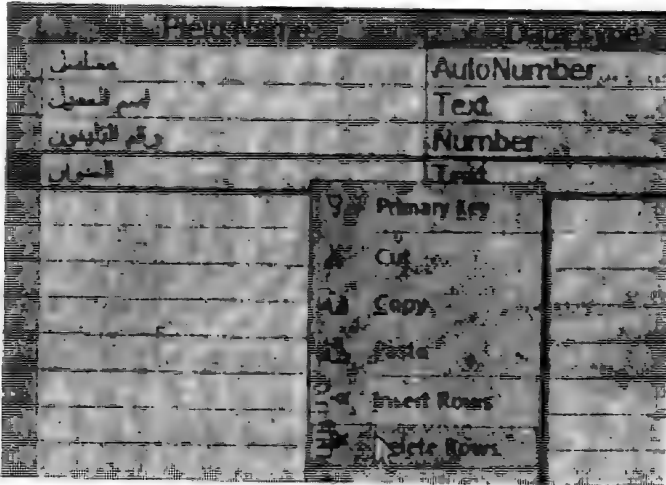 Field Name Data Type
مسلسل AutoNumber
اسم العميل Text
رقم التليفون Number
العنوان Text
Primary Key
Cut
Copy
Paste
Insert Rows
Delete Rows